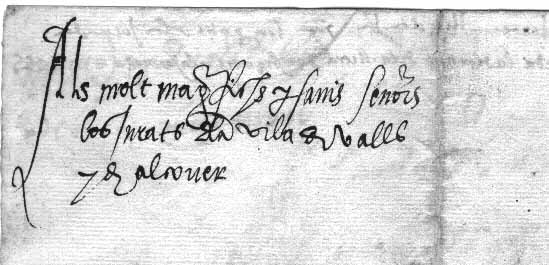 Als molt magchs y savis senors
los Jurats de la vila de Valls
y de alcover